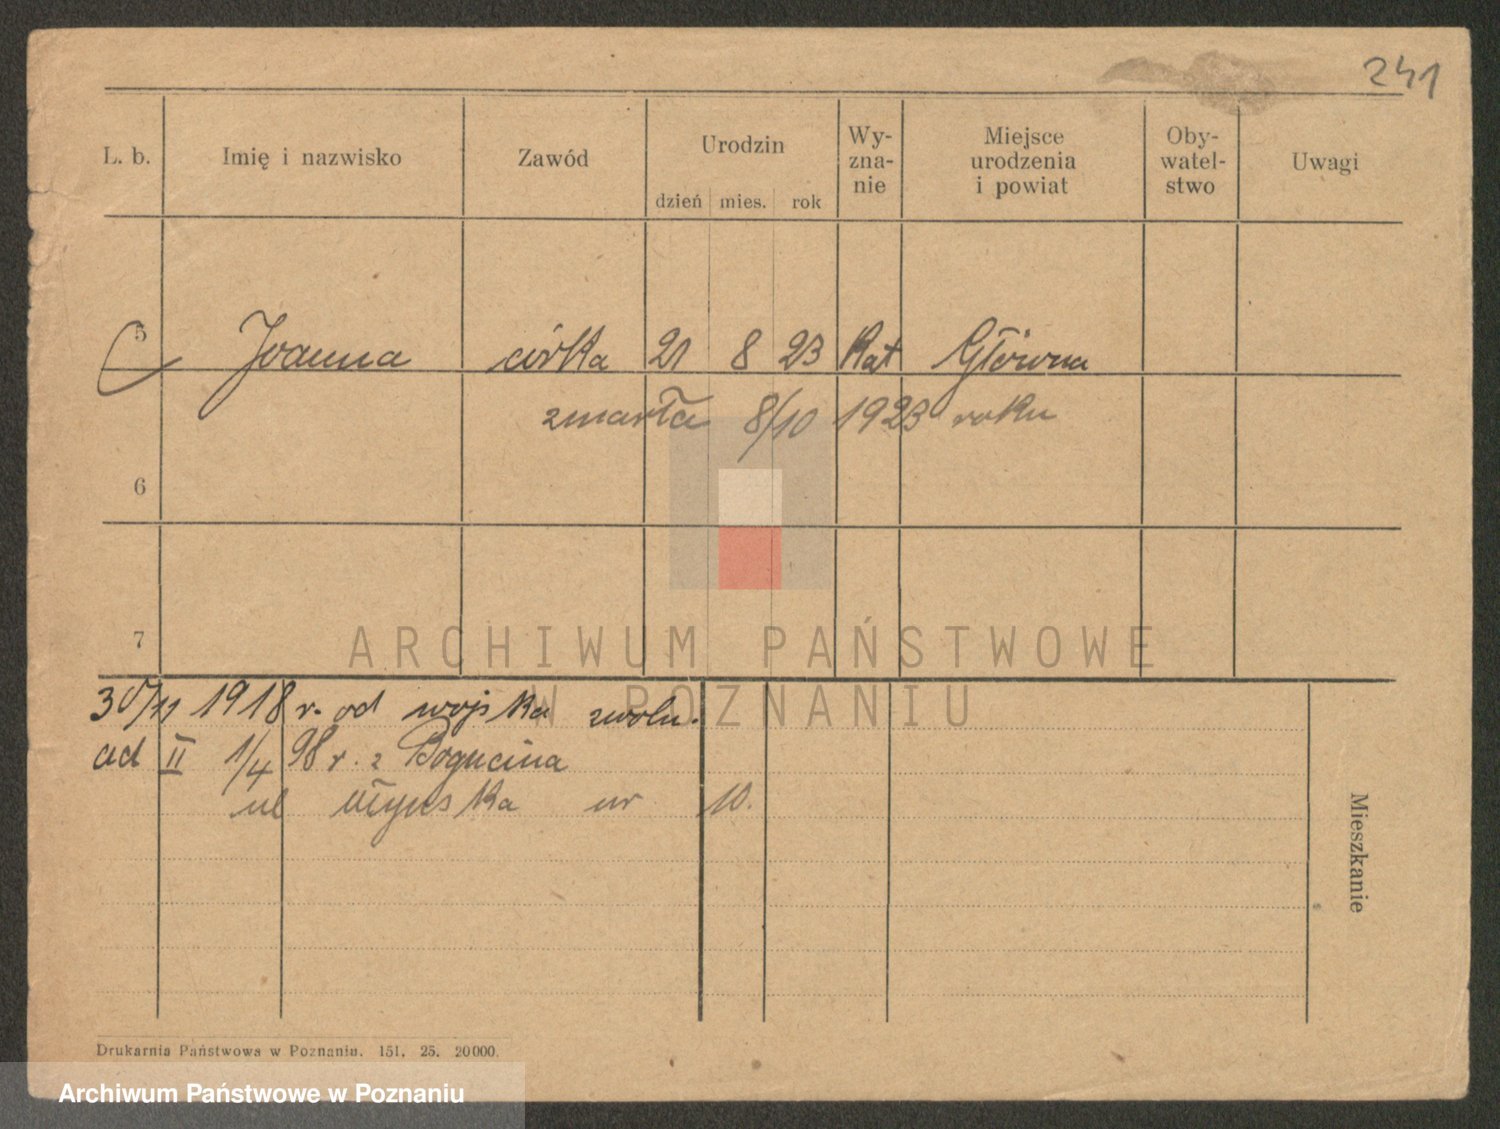 241
L. b. Imię i nazwisko Zawód Urodzin dzień mies. rok Wy-zna-nie Miejsce urodzenia i powiat Oby-watel-stwo Uwagi
5 Joanna córka 21 8 23 Kat Główna
zmarła 8/10 1923 roku
6
7
ARCHIWUM PAŃSTWOWE
W POZNANIU
30/11 1918 r. od wojska zwoln.
ad II 1/4 98 r. z Bogucina
ul Młyńska nr 10.
Mieszkanie
Drukarnia Państwowa w Poznaniu. 151. 25. 20000.
Archiwum Państwowe w Poznaniu